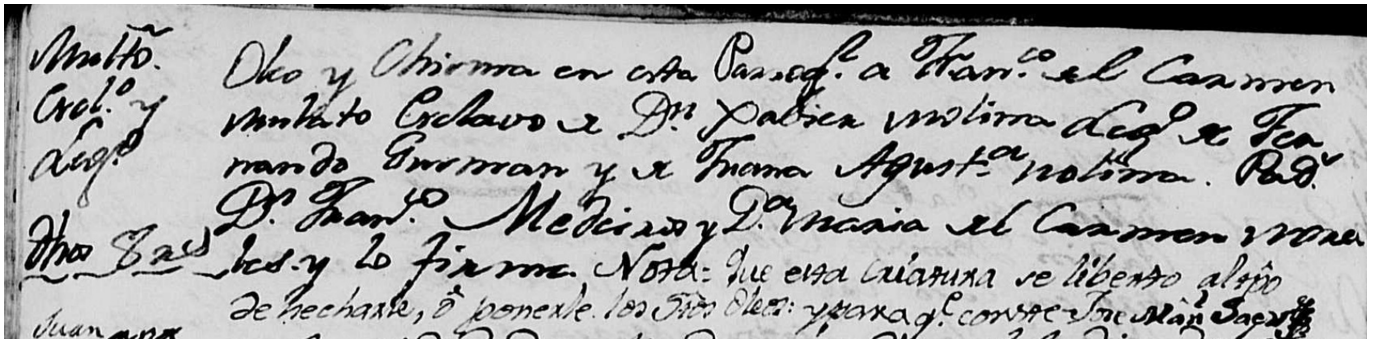 Multto.
Esclo. y
Legmo.
Dhos 8 res
Juan
Oleo y Chrisma en esta Parroql. a Franco. del Carmen
mulato Esclavo de Dn. Xabier Molina Legmo. de Fer
nando Gusman y de Juana Agusta. Molina. Pads.
Dn. Juan Medeiros y Da. Maria del Carmen Mora
les y lo firme. Nota: Que esta Criatura se liberto al tpo
de hecharle, ó ponerle los Stos Oleos: y para qe. conste Jose Manl. Saenz